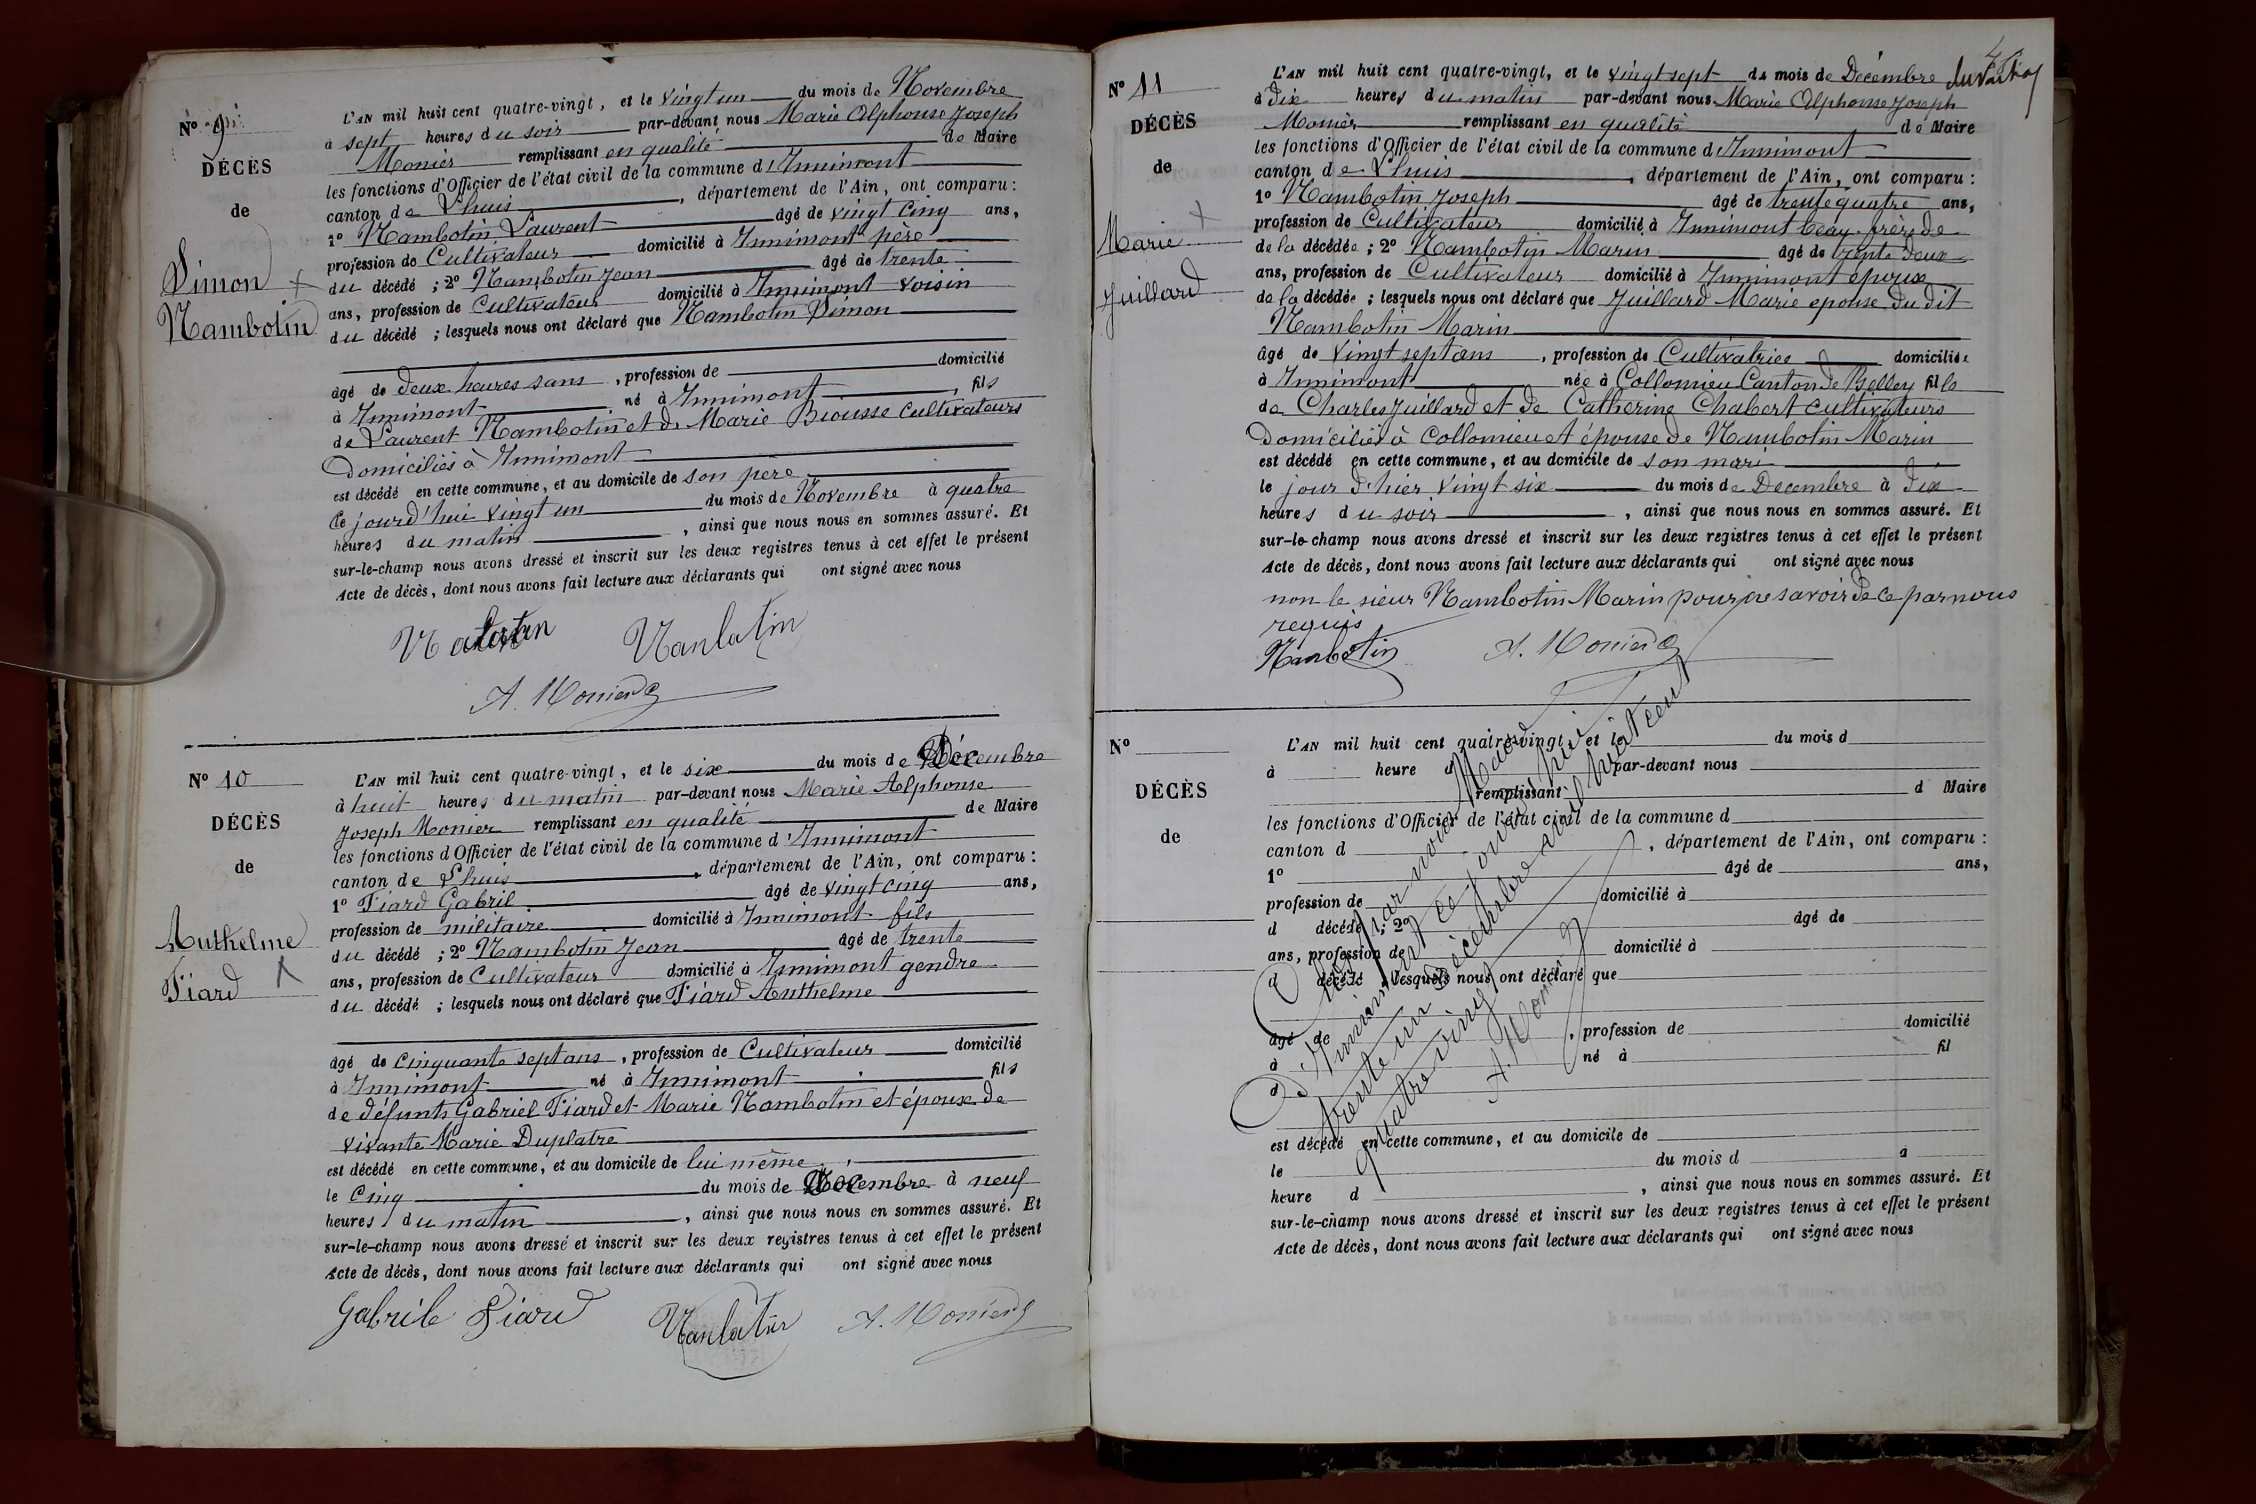 N° 9
DÉCÈS
de
Simon
Nambotin
L'AN mil huit cent quatre-vingt, et le vingt un du mois de Novembre
à sept heures du soir par-devant nous Marie Alphonse Joseph
Monier remplissant en qualité de Maire
les fonctions d'Officier de l'état civil de la commune d'Innimont
canton de Lhuis, département de l'Ain, ont comparu :
1° Nambotin Laurent âgé de vingt cinq ans,
profession de Cultivateur domicilié à Innimont père
du décédé ; 2° Nambotin Jean âgé de trente
ans, profession de Cultivateur domicilié à Innimont voisin
du décédé ; lesquels nous ont déclaré que Nambotin Simon
âgé de deux heures sans, profession de domicilié
à Innimont né à Innimont, fils
de Laurent Nambotin et de Marie Biousse cultivateurs
domiciliés à Innimont
est décédé en cette commune, et au domicile de son père
Ce jourd'hui vingt un du mois de Novembre à quatre
heures du matin, ainsi que nous nous en sommes assuré. Et
sur-le-champ nous avons dressé et inscrit sur les deux registres tenus à cet effet le présent
Acte de décès, dont nous avons fait lecture aux déclarants qui ont signé avec nous
Nanbotin
A. Monier
N° 10
DÉCÈS
de
Anthelme
Tiard
L'AN mil huit cent quatre-vingt, et le six du mois de Décembre
à huit heures du matin par-devant nous Marie Alphonse
Joseph Monier remplissant en qualité de Maire
les fonctions d'Officier de l'état civil de la commune d'Innimont
canton de Lhuis, département de l'Ain, ont comparu :
1° Tiard Gabril âgé de vingt cinq ans,
profession de militaire domicilié à Innimont fils
du décédé ; 2° Nambotin Jean âgé de trente
ans, profession de Cultivateur domicilié à Innimont gendre
du décédé ; lesquels nous ont déclaré que Tiard Anthelme
âgé de cinquante sept ans, profession de Cultivateur domicilié
à Innimont né à Innimont fils
de défunts Gabriel Tiard et Marie Nambotin et époux de
vivante Marie Duplatre
est décédé en cette commune, et au domicile de lui même
le Cinq du mois de Décembre à neuf
heures du matin, ainsi que nous nous en sommes assuré. Et
sur-le-champ nous avons dressé et inscrit sur les deux registres tenus à cet effet le présent
Acte de décès, dont nous avons fait lecture aux déclarants qui ont signé avec nous
Gabrile Tiard A. Monier
N° 11
DÉCÈS
de
Marie
Juillard
L'AN mil huit cent quatre-vingt, et le vingt sept du mois de Décembre
à dix heures du matin par-devant nous Marie Alphonse Joseph
Monier remplissant en qualité de Maire
les fonctions d'Officier de l'état civil de la commune d'Innimont
canton de Lhuis, département de l'Ain, ont comparu :
1° Nambotin Joseph âgé de trente quatre ans,
profession de Cultivateur domicilié à Innimont beau frère de
de la décédée ; 2° Nambotin Marin âgé de trente deux
ans, profession de Cultivateur domicilié à Innimont époux
de la décédée ; lesquels nous ont déclaré que Juillard Marie epouse du dit
Nambotin Marin
âgé de vingt sept ans, profession de Cultivatrice domiciliée
à Innimont née à Collomieu Canton de Belley fille
de Charles Juillard et de Catherine Chabert cultivateurs
Domiciliés à Collomieu et épouse de Nambotin Marin
est décédé en cette commune, et au domicile de son mari
le jour d'hier vingt six du mois de Decembre à dix
heures du soir, ainsi que nous nous en sommes assuré. Et
sur-le-champ nous avons dressé et inscrit sur les deux registres tenus à cet effet le présent
Acte de décès, dont nous avons fait lecture aux déclarants qui ont signé avec nous
non le sieur Nambotin Marin pour ne savoir de ce par nous
requis
Nanbotin A. Monier
N°
DÉCÈS
de
L'AN mil huit cent quatre-vingt, et le du mois d
à heure d par-devant nous
remplissant d Maire
les fonctions d'Officier de l'état civil de la commune d
canton d, département de l'Ain, ont comparu :
1° âgé de ans,
profession de domicilié à
d décédé ; 2° âgé de
ans, profession de domicilié à
d décédé ; lesquels nous ont déclaré que
âgé de, profession de domicilié
à né à fil
d
est décédé en cette commune, et au domicile de
le du mois d à
heure d, ainsi que nous nous en sommes assuré. Et
sur-le-champ nous avons dressé et inscrit sur les deux registres tenus à cet effet le présent
Acte de décès, dont nous avons fait lecture aux déclarants qui ont signé avec nous
Clos par nous Maire
D'Innimont ce jourd'hui
trente un Décembre mil huit cent
quatre vingt
A. Monier